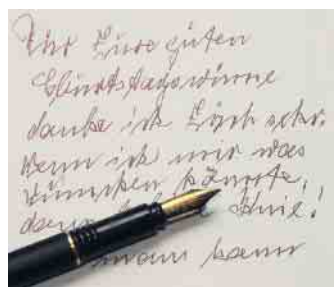 Für Eure guten
danke ich Euch sehr.
Wenn ich mir was
wünschen könnte,
dann Knie!
man kann